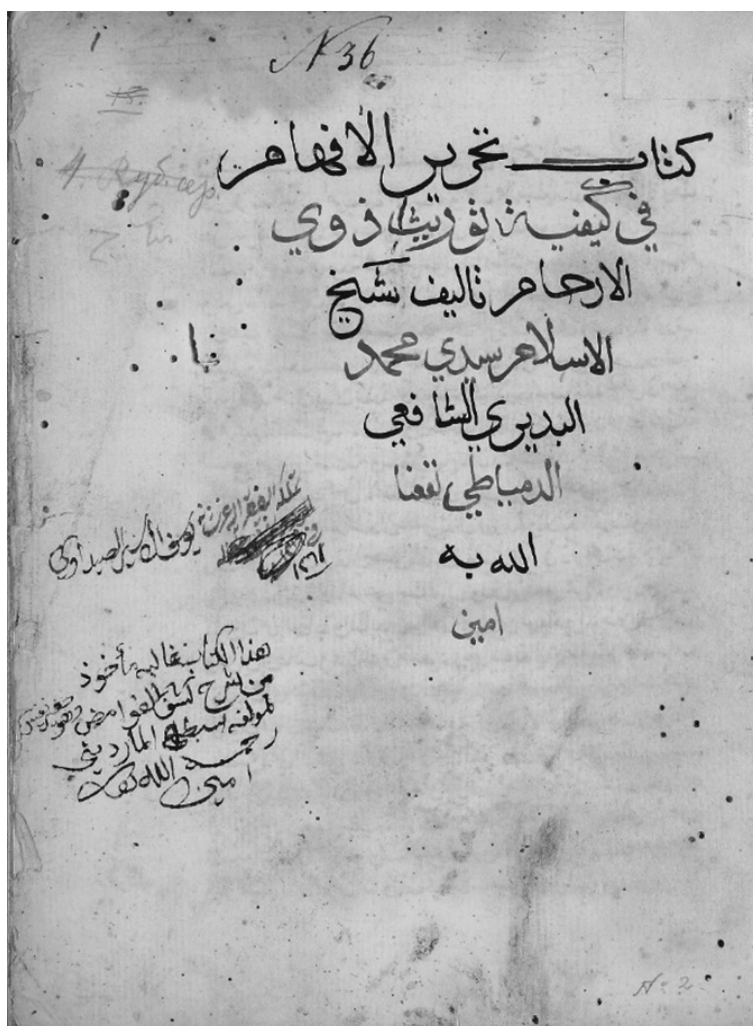 1
N 36
13.
كتاب تحرير الافهام
في كيفية توريث ذوي
الارحام تاليف شيخ
الاسلام سيدي محمد
البديري الشافعي
الدمياطي نفعنا
الله به
امين
يوسف الصيداوي
هذا الكتاب غالبه مأخوذ
من شرح كشف الغوامض وهو
لمؤلفه سبط المارديني
رحمه الله
امين
N. 2